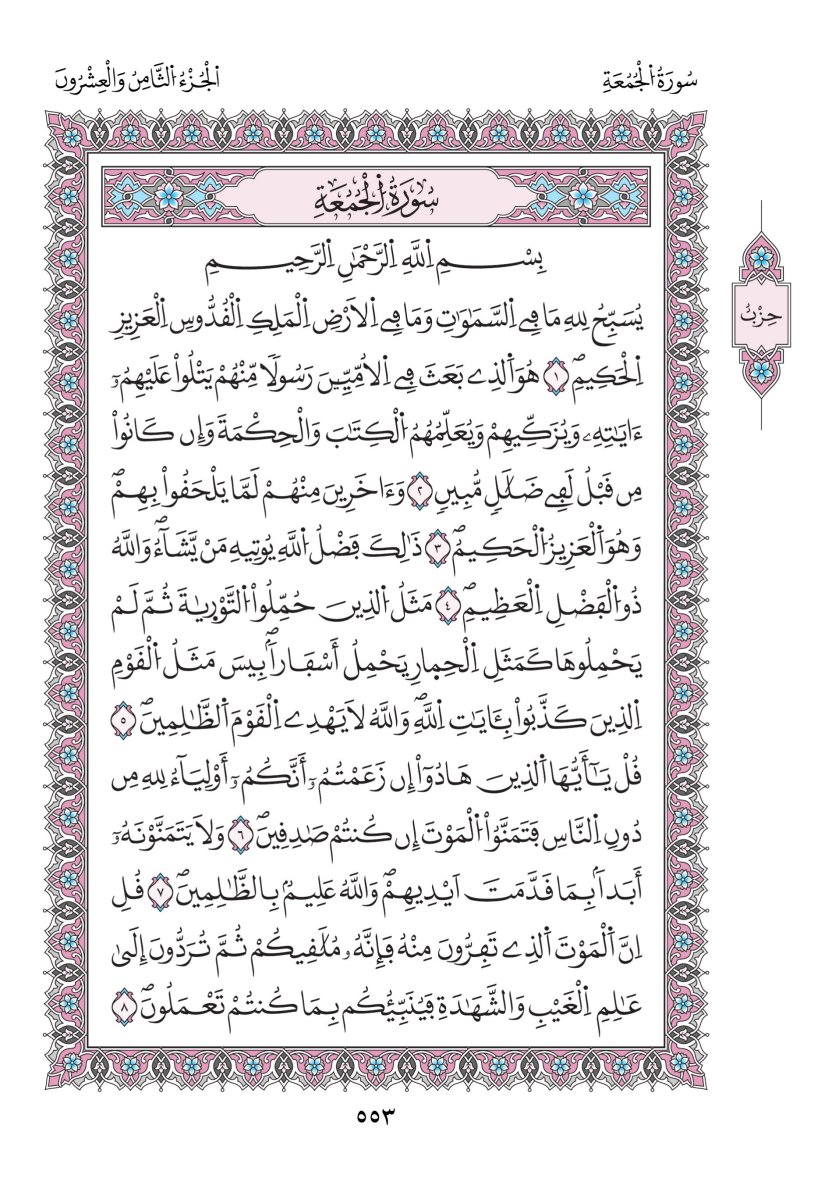 سُورَةُ الْجُمُعَةِ
الْجُزْءُ الثَّامِنُ وَالْعِشْرُونَ
سُورَةُ الْجُمُعَةِ
حِزْبٌ
بِسْمِ اِللَّهِ اِلرَّحْمَٰنِ اِلرَّحِيمِ
يُسَبِّحُ لِلهِ مَا فِے اِلسَّمَٰوَٰتِ وَمَا فِے اِلَارْضِ اِلْمَلِكِ اِلْقُدُّوسِ اِلْعَزِيزِ
اِلْحَكِيمِۖ ١ هُوَ اَلذِے بَعَثَ فِے اِلُامِّيِّـۧنَ رَسُولٗا مِّنْهُمْ يَتْلُواْ عَلَيْهِمُۥٓ
ءَايَٰتِهِۦ وَيُزَكِّيهِمْ وَيُعَلِّمُهُمُ اُلْكِتَٰبَ وَالْحِكْمَةَ وَإِن كَانُواْ
مِن قَبْلُ لَفِے ضَلَٰلٖ مُّبِينٖ ٢ وَءَاخَرِينَ مِنْهُمْ لَمَّا يَلْحَقُواْ بِهِمْۖ
وَهُوَ اَلْعَزِيزُ اُلْحَكِيمُۖ ٣ ذَٰلِكَ فَضْلُ اُللَّهِ يُوتِيهِ مَنْ يَّشَآءُۖ وَاللَّهُ
ذُو اُلْفَضْلِ اِلْعَظِيمِۖ ٤ مَثَلُ اُلذِينَ حُمِّلُواْ اُلتَّوْرَيٰةَ ثُمَّ لَمْ
يَحْمِلُوهَا كَمَثَلِ اِلْحِمارِ يَحْمِلُ أَسْفَاراَۢۖ بِيسَ مَثَلُ اُلْقَوْمِ
اِلذِينَ كَذَّبُواْ بِـَٔايَٰتِ اِللَّهِۖ وَاللَّهُ لَا يَهْدِے اِلْقَوْمَ اَلظَّٰلِمِينَۖ ٥
قُلْ يَٰٓأَيُّهَا اَلذِينَ هَادُوٓاْ إِن زَعَمْتُمُۥٓ أَنَّكُمُۥٓ أَوْلِيَآءُ لِلهِ مِن
دُونِ اِلنَّاسِ فَتَمَنَّوُاْ اُلْمَوْتَ إِن كُنتُمْ صَٰدِقِينَۖ ٦ وَلَا يَتَمَنَّوْنَهُۥٓ
أَبَداَۢ بِمَا قَدَّمَتَ اَيْدِيهِمْۖ وَاللَّهُ عَلِيمُۢ بِالظَّٰلِمِينَۖ ٧ قُلِ
اِنَّ اَلْمَوْتَ اَلذِے تَفِرُّونَ مِنْهُ فَإِنَّهُۥ مُلَٰقِيكُمْ ثُمَّ تُرَدُّونَ إِلَىٰ
عَٰلِمِ اِلْغَيْبِ وَالشَّهَٰدَةِ فَيُنَبِّئُكُم بِمَا كُنتُمْ تَعْمَلُونَۖ ٨
٥٥٣